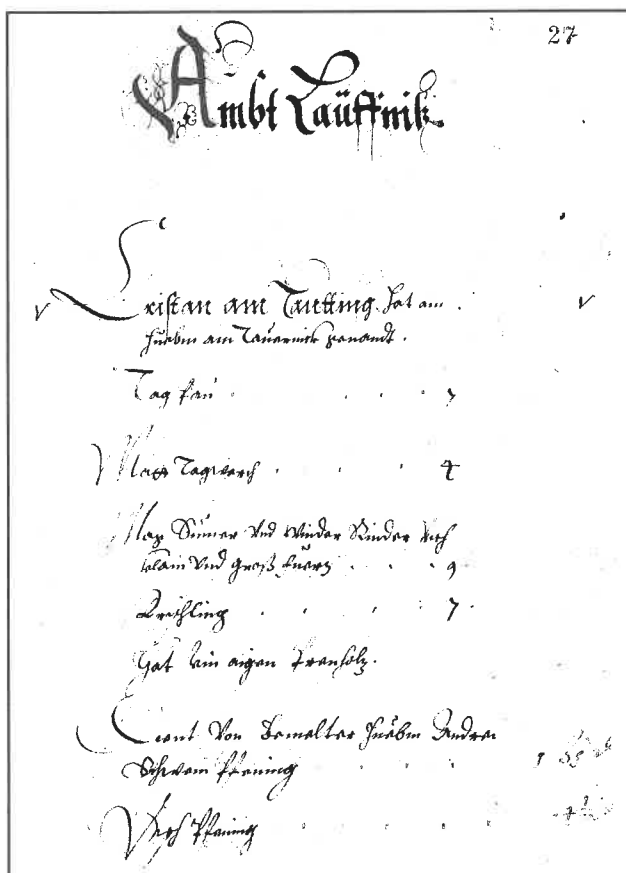 27
Ambt Laüffnik.
Cristan am Tautting hat am
Huebm am Tauernick genandt.
Tag pau
Matt Tagwerch 4
Mag Sumer vnd Winder Rinder vich
klain vnd groß fuern 9
Frischling 7
Hat ein aigen Prenholz.
Dient von bemelter Huebm Andree
Schwein Phening
Werch Phening